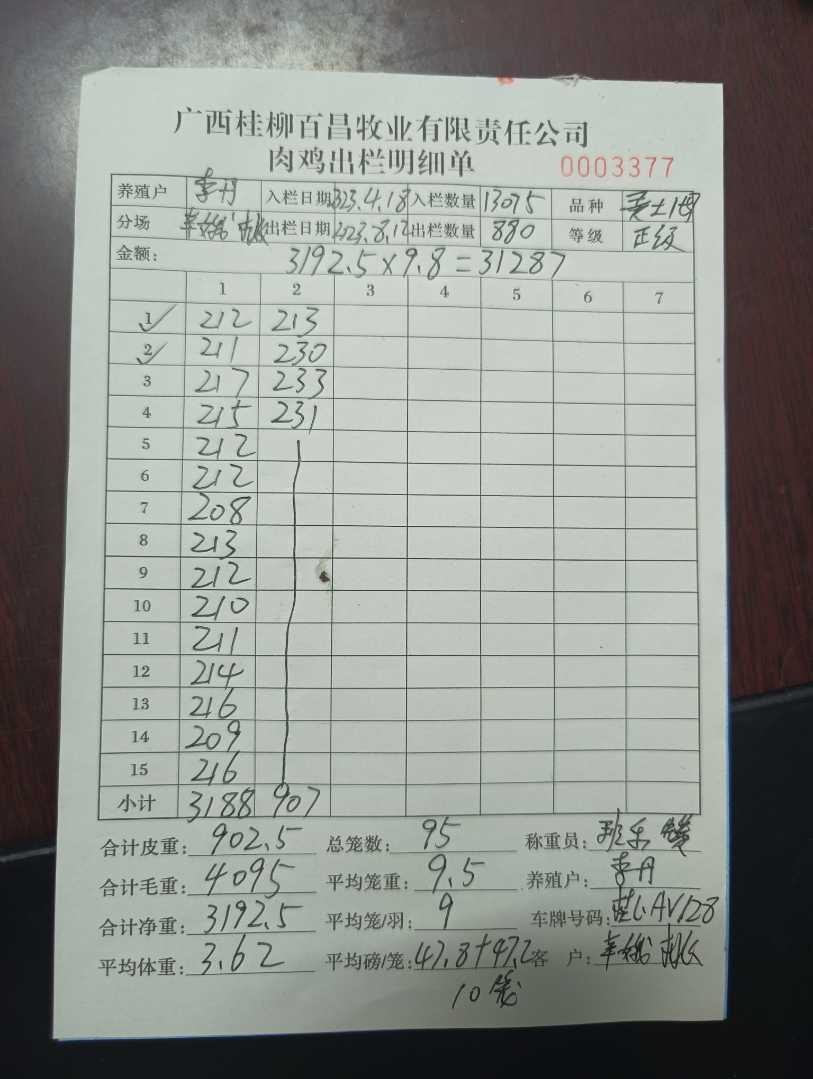 广西桂柳百昌牧业有限责任公司
肉鸡出栏明细单 0003377
养殖户 李丹 入栏日期 2023.4.18 入栏数量 13075 品种
分场 出栏日期 2023.8.12 出栏数量 880 等级 正级
金额: 3192.5×9.8=31287
1 2 3 4 5 6 7
1 212 213
2 211 230
3 217 233
4 215 231
5 212
6 212
7 208
8 213
9 212
10 210
11 211
12 214
13 216
14 209
15 216
小计 3188 907
合计皮重: 902.5 总笼数: 95 称重员:
合计毛重: 4095 平均笼重: 9.5 养殖户: 李丹
合计净重: 3192.5 平均笼/羽: 9 车牌号码: AV128
平均体重: 3.62 平均磅/笼: 47.8+47.2 客 户:
10笼